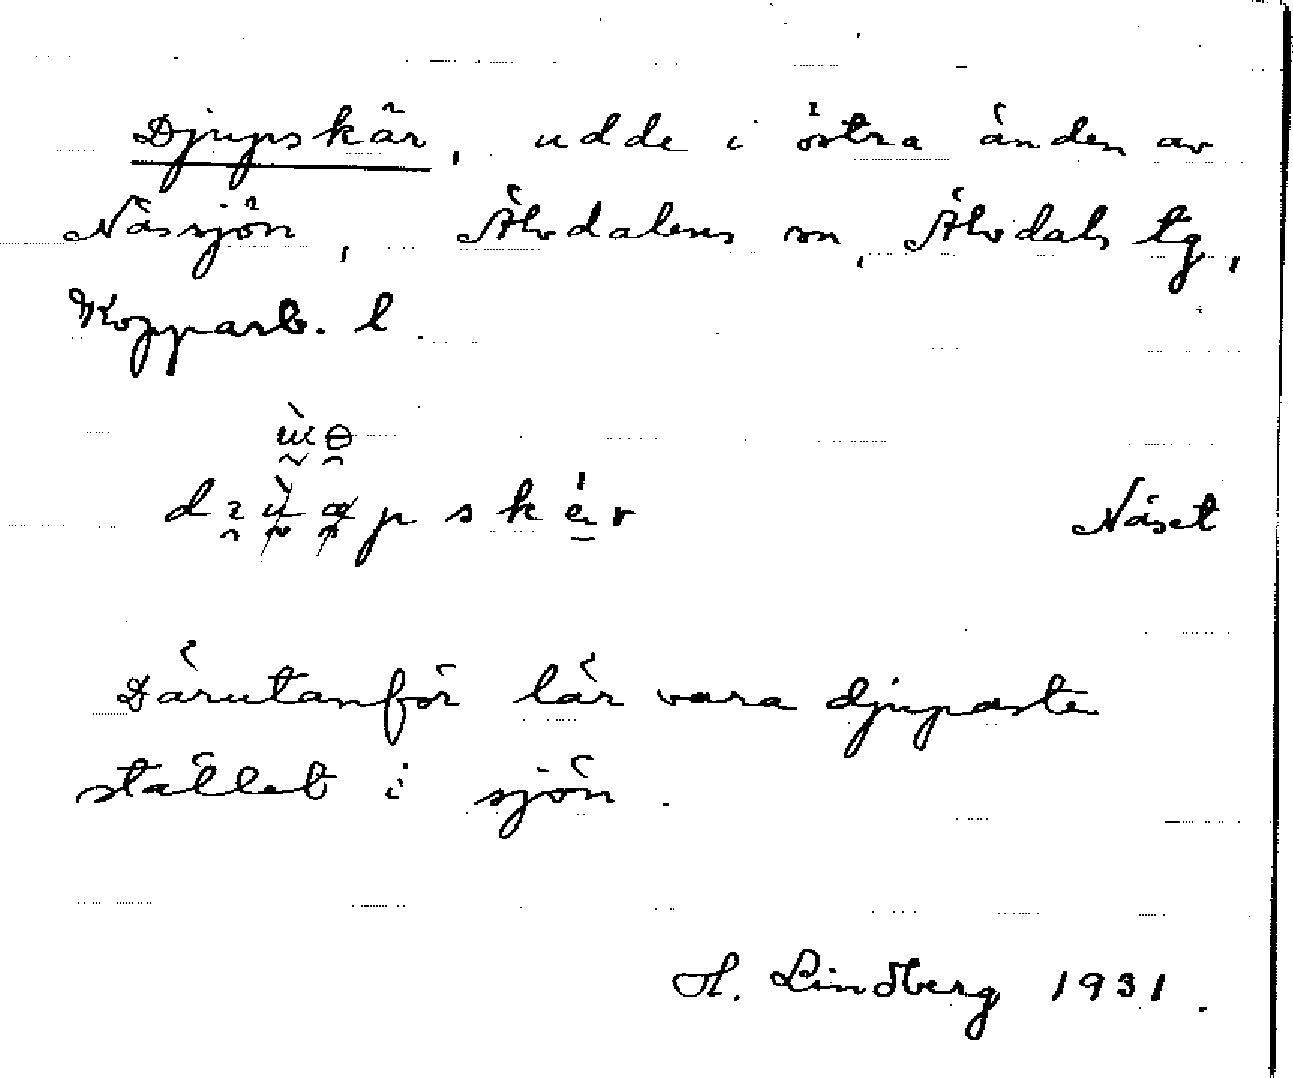 Djupskär, udde i östra änden av
Nässjön, Älvdalens sn, Älvdals tg,
Kopparb. l.
Näset
Därutanför lär vara djupaste
stället i sjön.
H. Lindberg 1931.